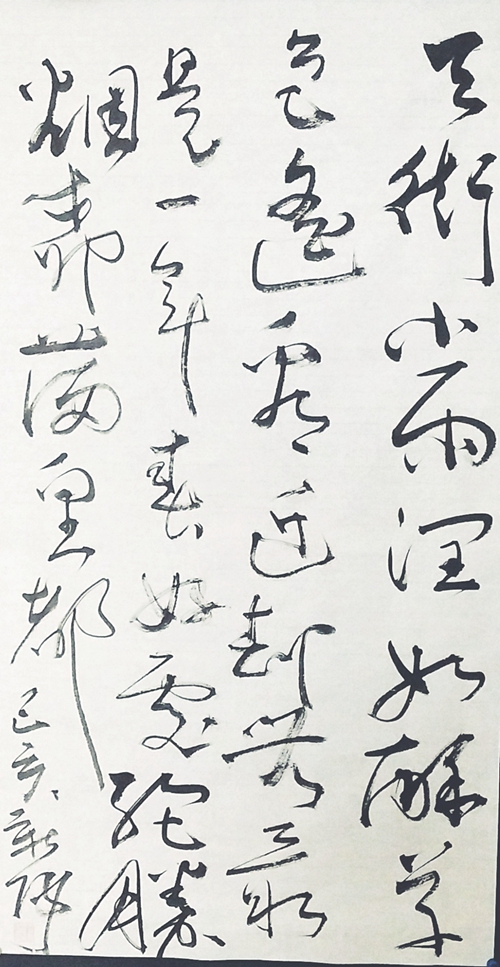 天街小雨润如酥草
色遥看近却无最
是一年春好處絕勝
烟柳满皇都己亥